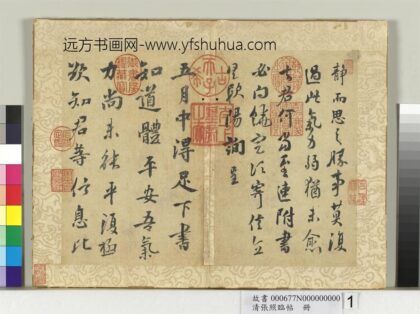 远方书画网-www.yfshuhua.com
静而思之勝事莫復
過此氣力弱猶未愈
吾君何當至速附書
必向饒定須寄信立
具歐陽詢呈
五月中得足下書
知道體平安吾氣
力尚未能平復極
欲知君等信息比
故書 000677N000000000
清張照臨帖 冊
1